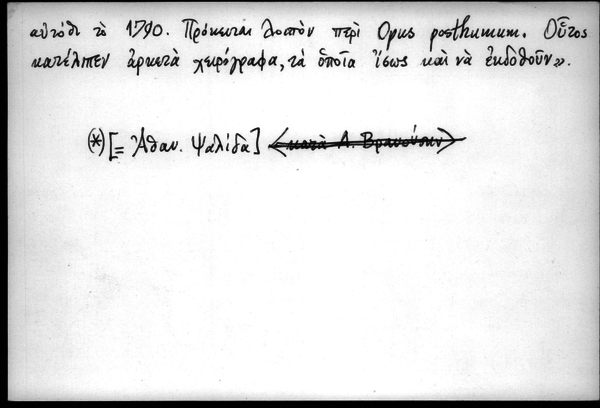 αὐτόθι τὸ 1790. Πρόκειται λοιπὸν περὶ Opus posthumum. Οὗτος
κατέλιπεν ἀρκετὰ χειρόγραφα, τὰ ὁποῖα ἴσως καὶ νὰ ἐκδοθοῦν».
(*) [= Ἀθαν. Ψαλίδα] <κατὰ Λ. Βρανούση>